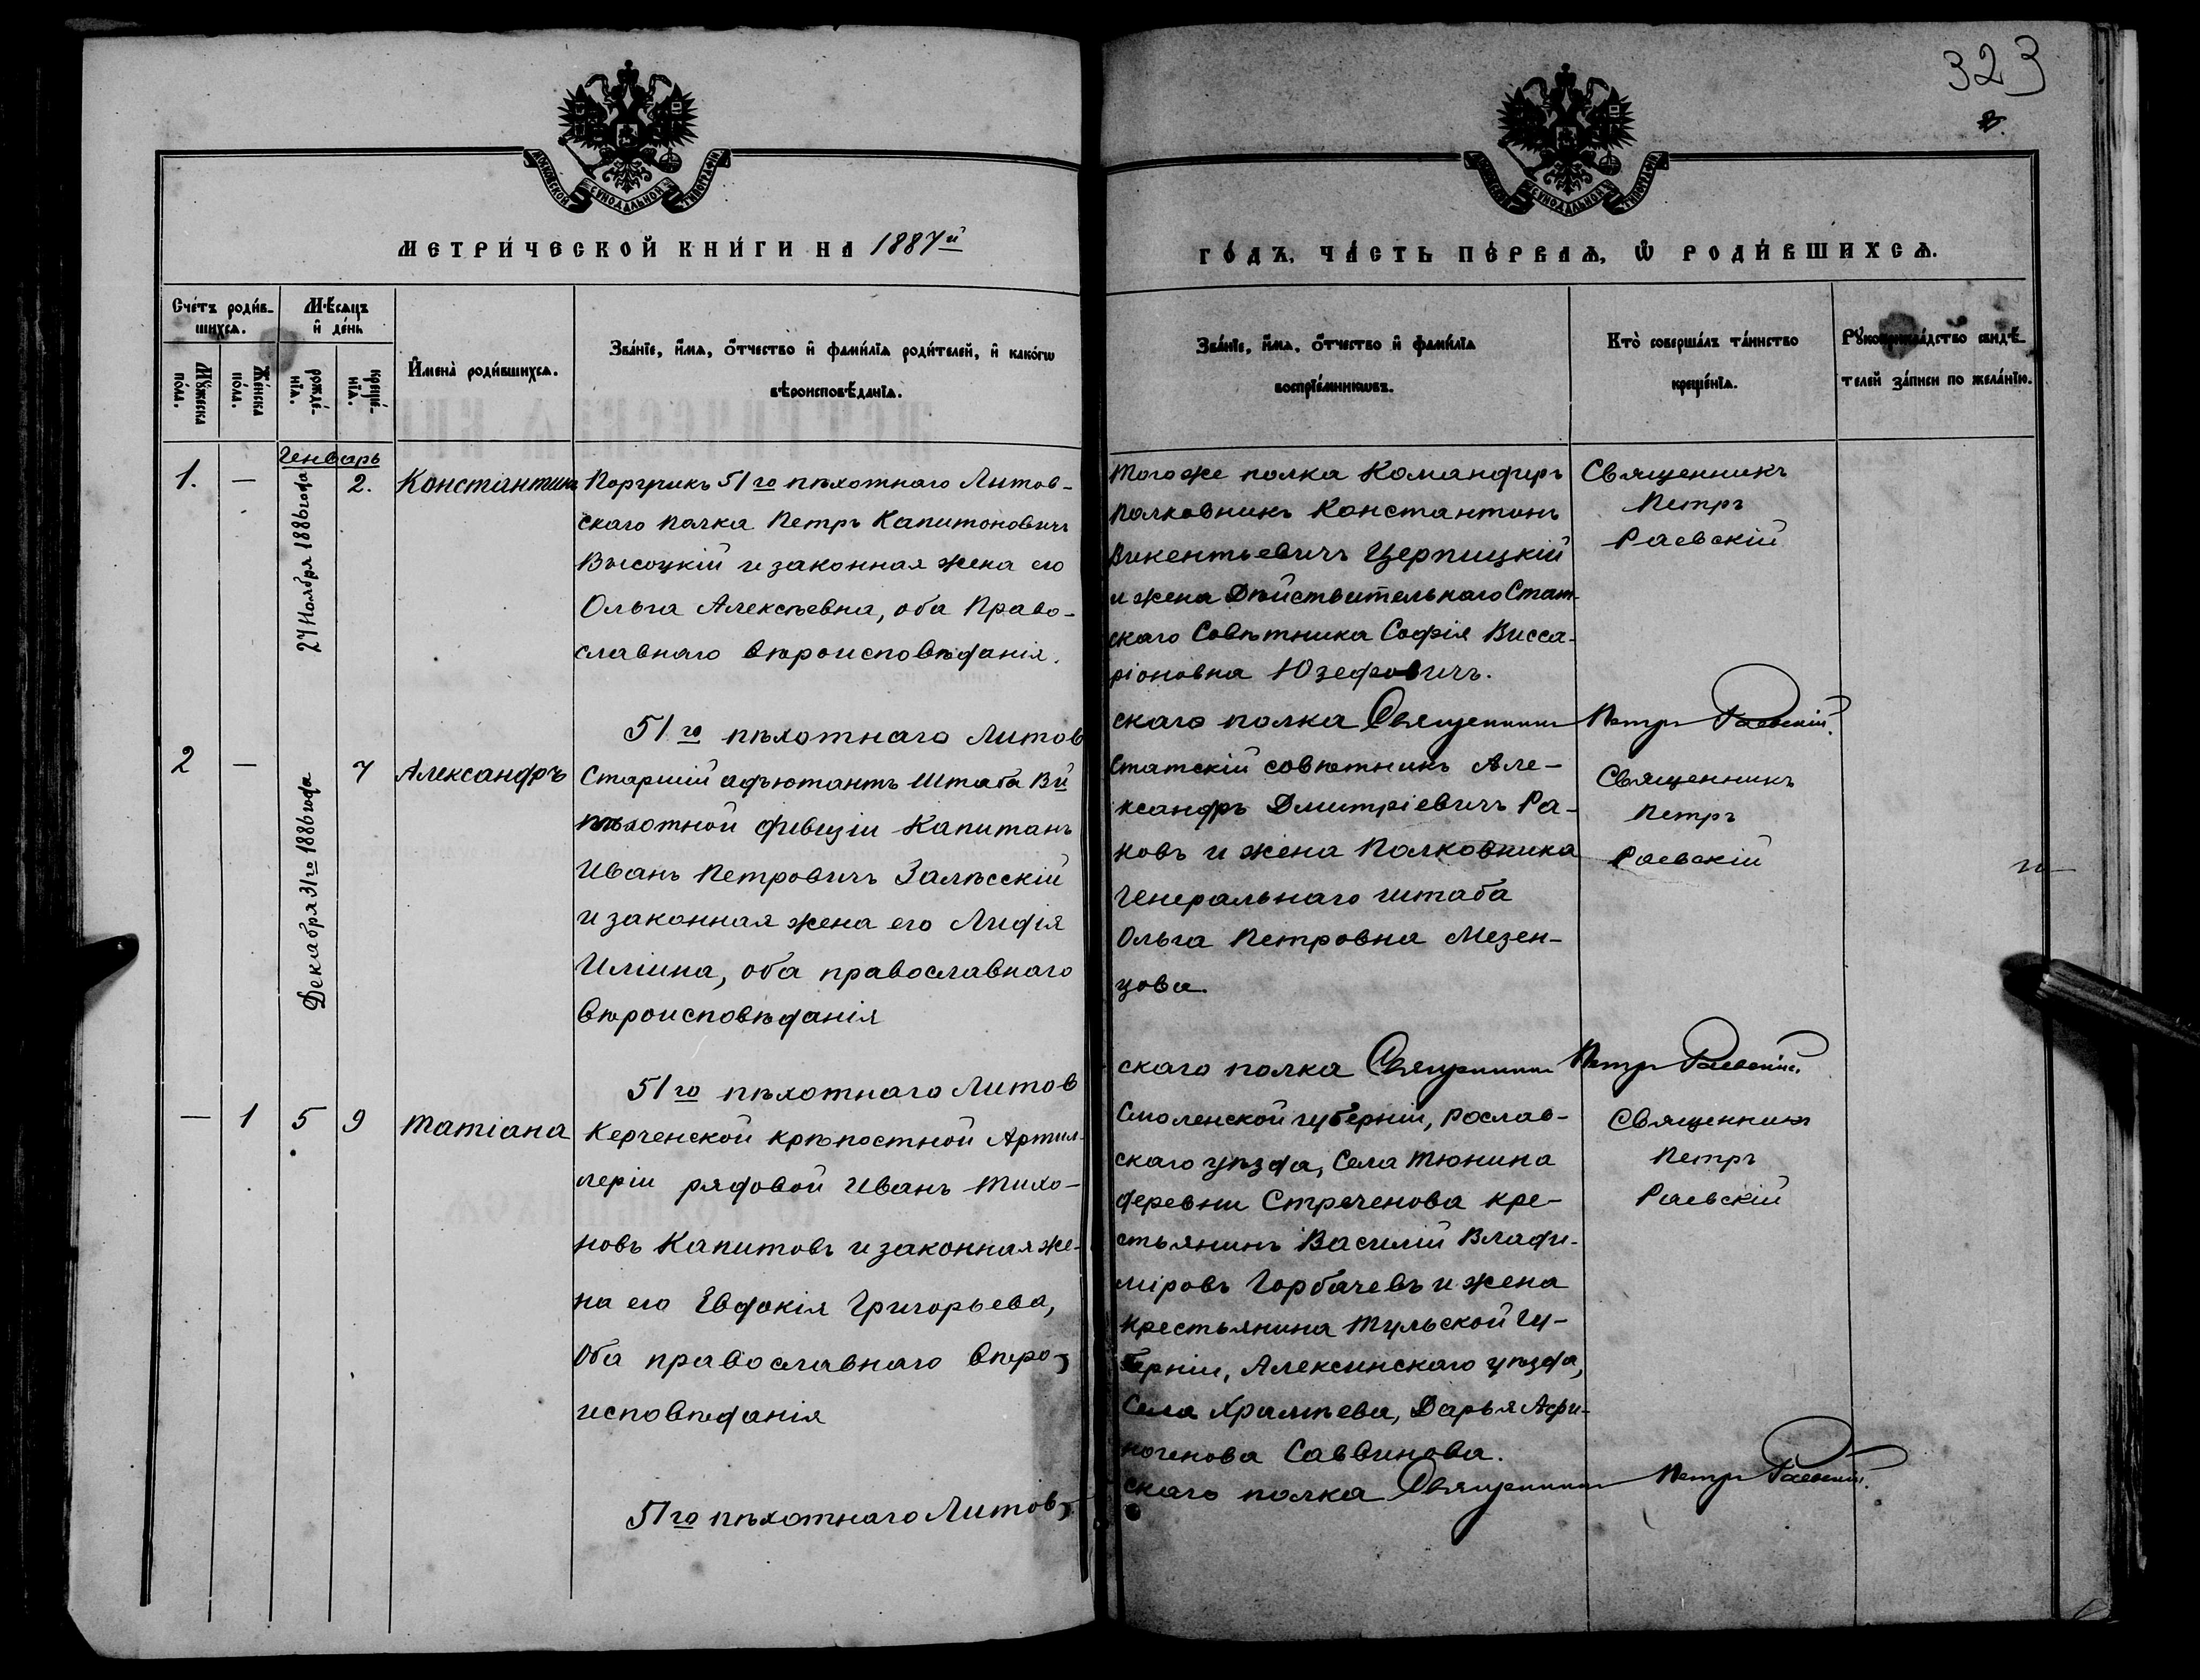 323
МОСКОВСКОЙ СѴНОДАЛЬНОЙ ТИПОГРАФІИ
МОСКОВСКОЙ СѴНОДАЛЬНОЙ ТИПОГРАФІИ
МЕТРИ́ЧЕСКОЙ КНИ́ГИ НА 1887й
ГО́ДЪ, ЧА́СТЬ ПЕ́РВАѦ, Ѡ҆ РОДИ́ВШИХСѦ.
Сче́тъ роди́в-
шихсѧ.
Мѣ́сѧцъ
и҆ де́нь
Мꙋ́жеска по́ла.
Же́нска по́ла.
рожде́-нїѧ.
креще́-нїѧ.
И҆мена̀ роди́вшихсѧ.
Зва́нїе, и҆́мѧ, ѻ҆́тчество и҆ фами́лїѧ роди́телей, и҆ како́гѡ
вѣроисповѣ́данїѧ.
Зва́нїе, и҆́мѧ, ѻ҆́тчество и҆ фами́лїѧ
воспрїе́мникѡвъ.
Кто̀ соверша́лъ та́инство
креще́нїѧ.
Рꙋкоприкла́дство свидѣ́-
телей за́писи по жела́нїю.
Генварь
1. — 27 Ноября 1886 года 2. Константинъ
Поручикъ 51го пѣхотнаго Литов-
скаго полка Петръ Капитоновичъ
Высоцкій и законная жена его
Ольга Алексѣевна, оба Право-
славнаго вѣроисповѣданія.
Тогоже полка Командиръ
Полковникъ Константинъ
Викентьевичъ Церпицкій
и жена Дѣйствительнаго Стат-
скаго Совѣтника Софія Висса-
ріоновна Юзефовичъ.
Священникъ
Петръ
Раевскій
51го пѣхотнаго Литов
скаго полка Священникъ Петръ Раевскій.
2 — Декабря 31го 1886 года 7 Александръ
Старшій адъютантъ Штаба 13й
пѣхотной дивизіи Капитанъ
Иванъ Петровичъ Залѣсскій
и законная жена его Лидія
Иліина, оба православнаго
вѣроисповѣданія
Статскій совѣтникъ Але-
ксандръ Дмитріевичъ Ра-
новъ и жена Полковника
Генеральнаго штаба
Ольга Петровна Мезен-
цова.
Священникъ
Петръ
Раевскій
51го пѣхотнаго Литов
скаго полка Священникъ Петръ Раевскій.
— 1 5 9 Татіана
Керченской крѣпостной Артил-
леріи рядовой Иванъ Тихо-
новъ Капитовъ и законная же-
на его Евдокія Григорьева,
оба православнаго вѣро-
исповѣданія
Смоленской губерніи, Рослав-
скаго уѣзда, Села Тюнина
деревни Стреченова кре-
стьянинъ Василій Влади-
міровъ Горбачевъ и жена
крестьянина Тульской Гу-
берніи, Алексинскаго уѣзда,
Села Хрампева, Дарья Афи-
ногенова Саввинова.
Священникъ
Петръ
Раевскій
51го пѣхотнаго Литов-
скаго полка Священникъ Петръ Раевскій.